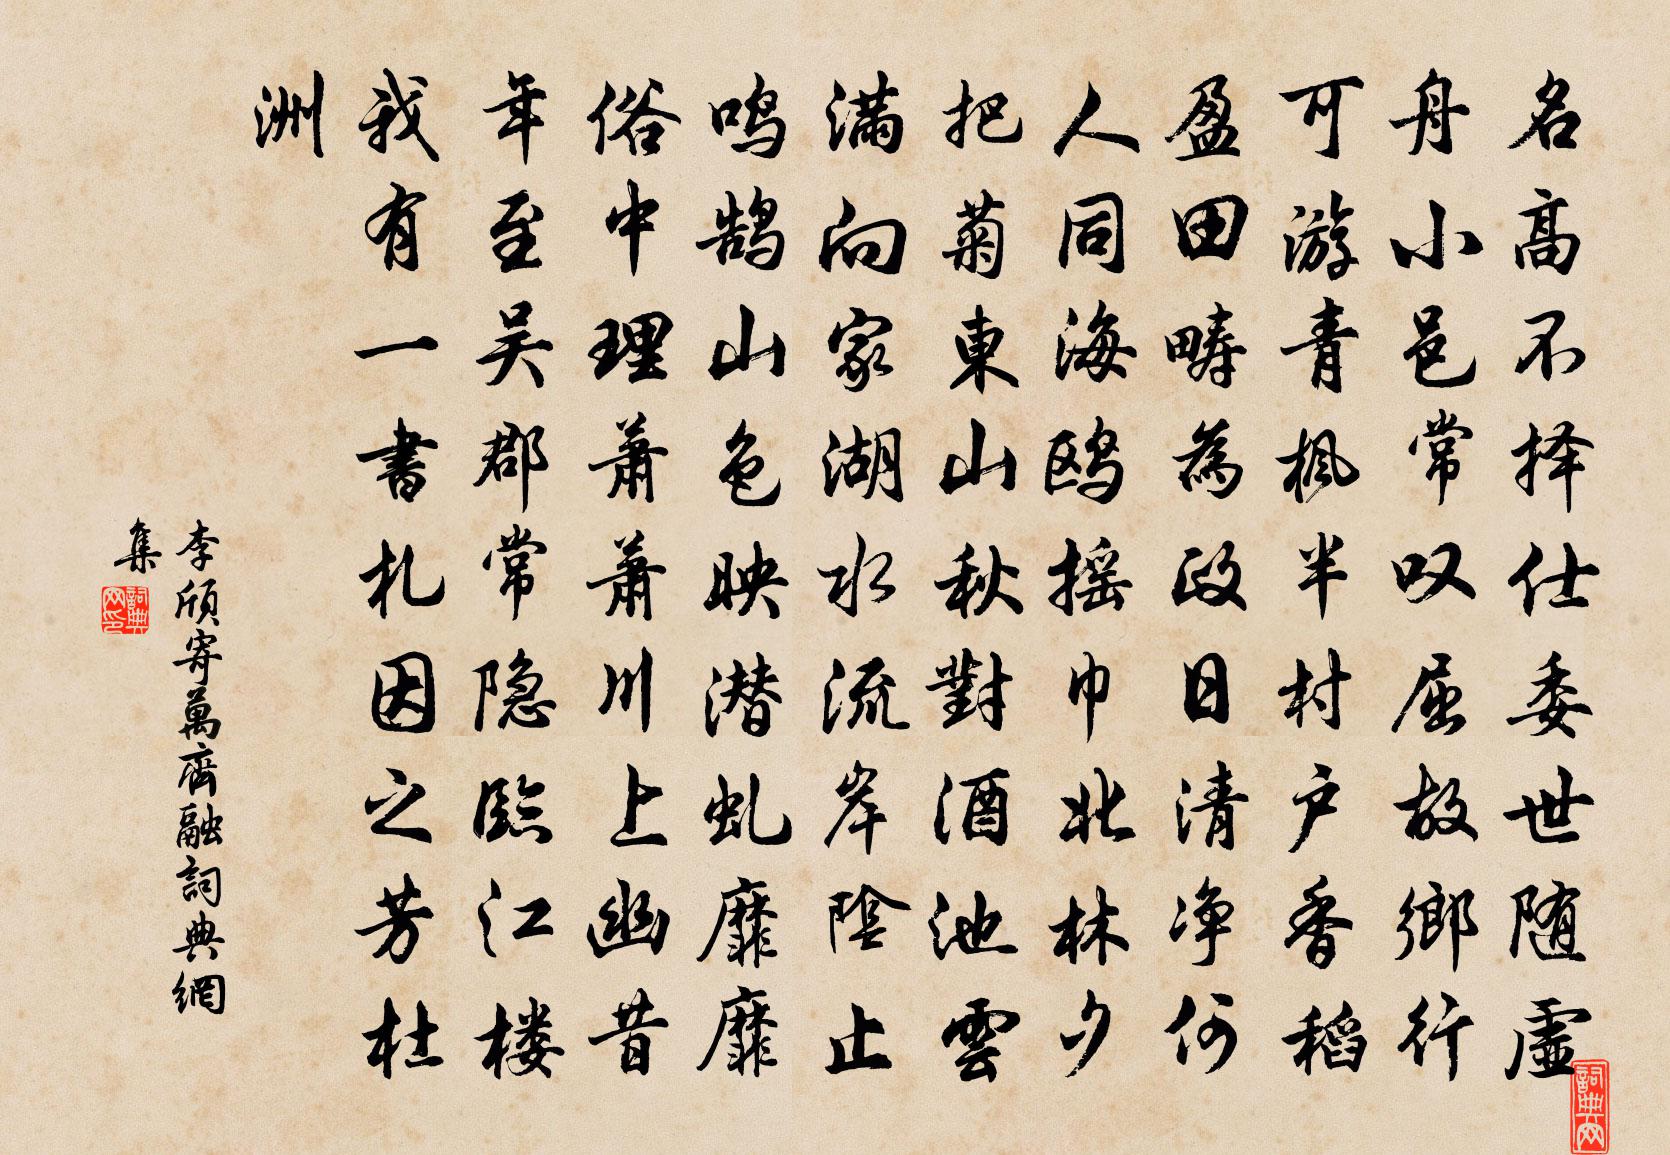 名高不择仕委世随虚
舟小邑常叹屈故鄉行
可游青枫半村户香稻
盈田畴為政日清净何
人同海鸥摇巾北林夕
把菊東山秋對酒池雲
满向家湖水流岸陰止
鸣鹄山色映潜虬靡靡
俗中理萧萧川上幽昔
年至吴郡常隐臨江楼
我有一書札因之芳杜
洲
李颀寄萬齊融詞典網
集
詞典网印
詞典网